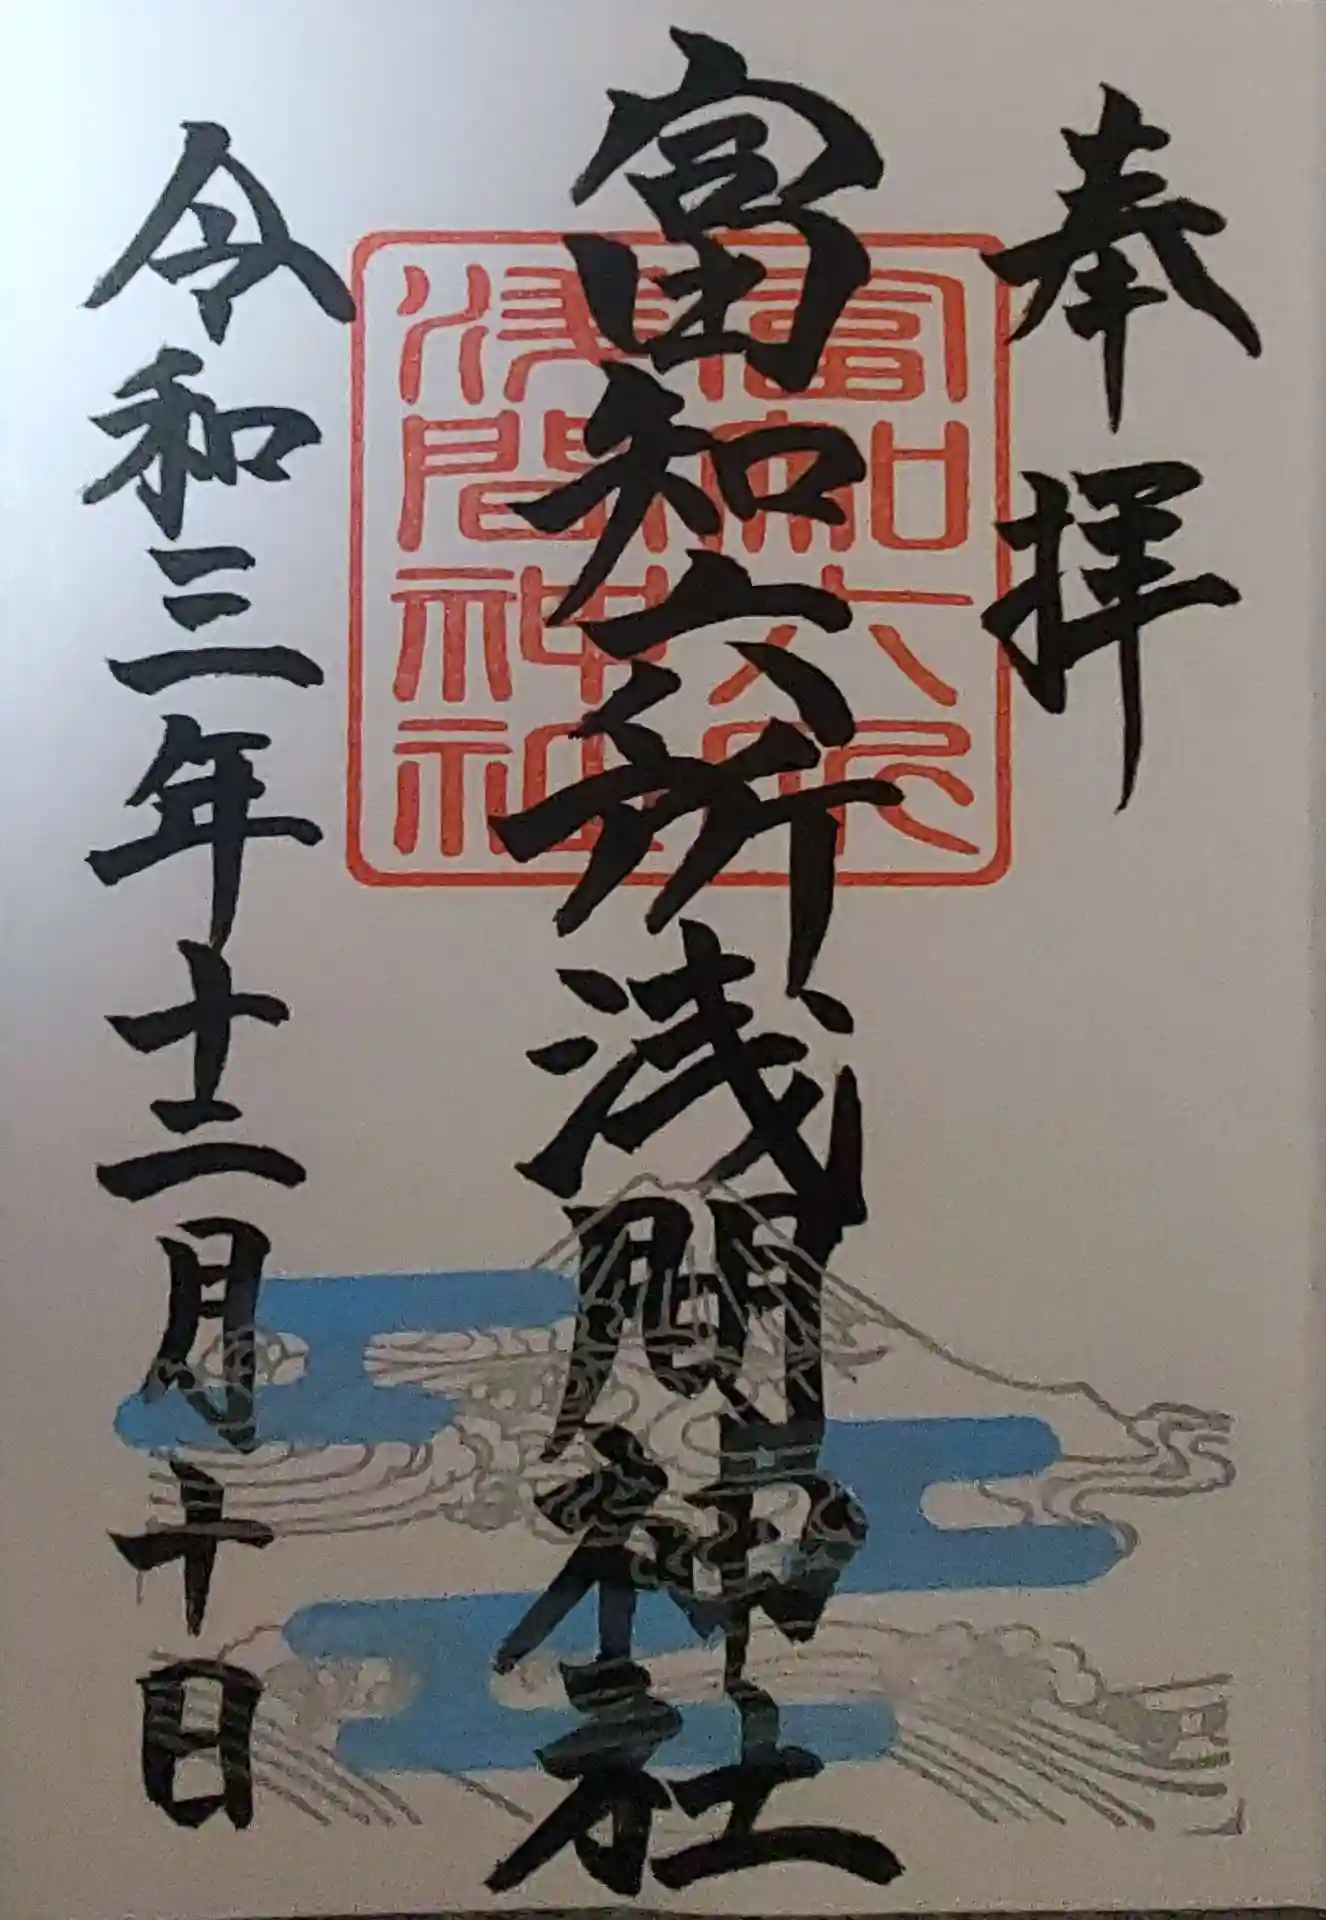 奉拝
富知六所浅間神社
令和三年十二月十日
浅間神社